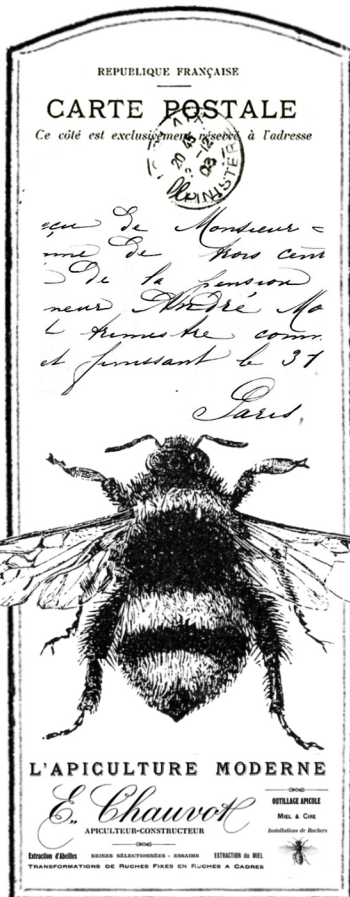 REPUBLIQUE FRANÇAISE
CARTE POSTALE
Ce côté est exclusivement réservé à l'adresse
20 45
2-12
03
FINISTÈRE
eçu de Monsieur
de trois cent
de la pension
neur André Mo
trimestre comm
et finissant le 31
Paris,
L'APICULTURE MODERNE
E. Chauvot
APICULTEUR-CONSTRUCTEUR
OUTILLAGE APICOLE
MIEL & CIRE
Installations de Ruchers
Extraction d'Abeilles REINES SÉLECTIONNÉES - ESSAIMS EXTRACTION du MIEL
TRANSFORMATIONS DE RUCHES FIXES EN RUCHES A CADRES